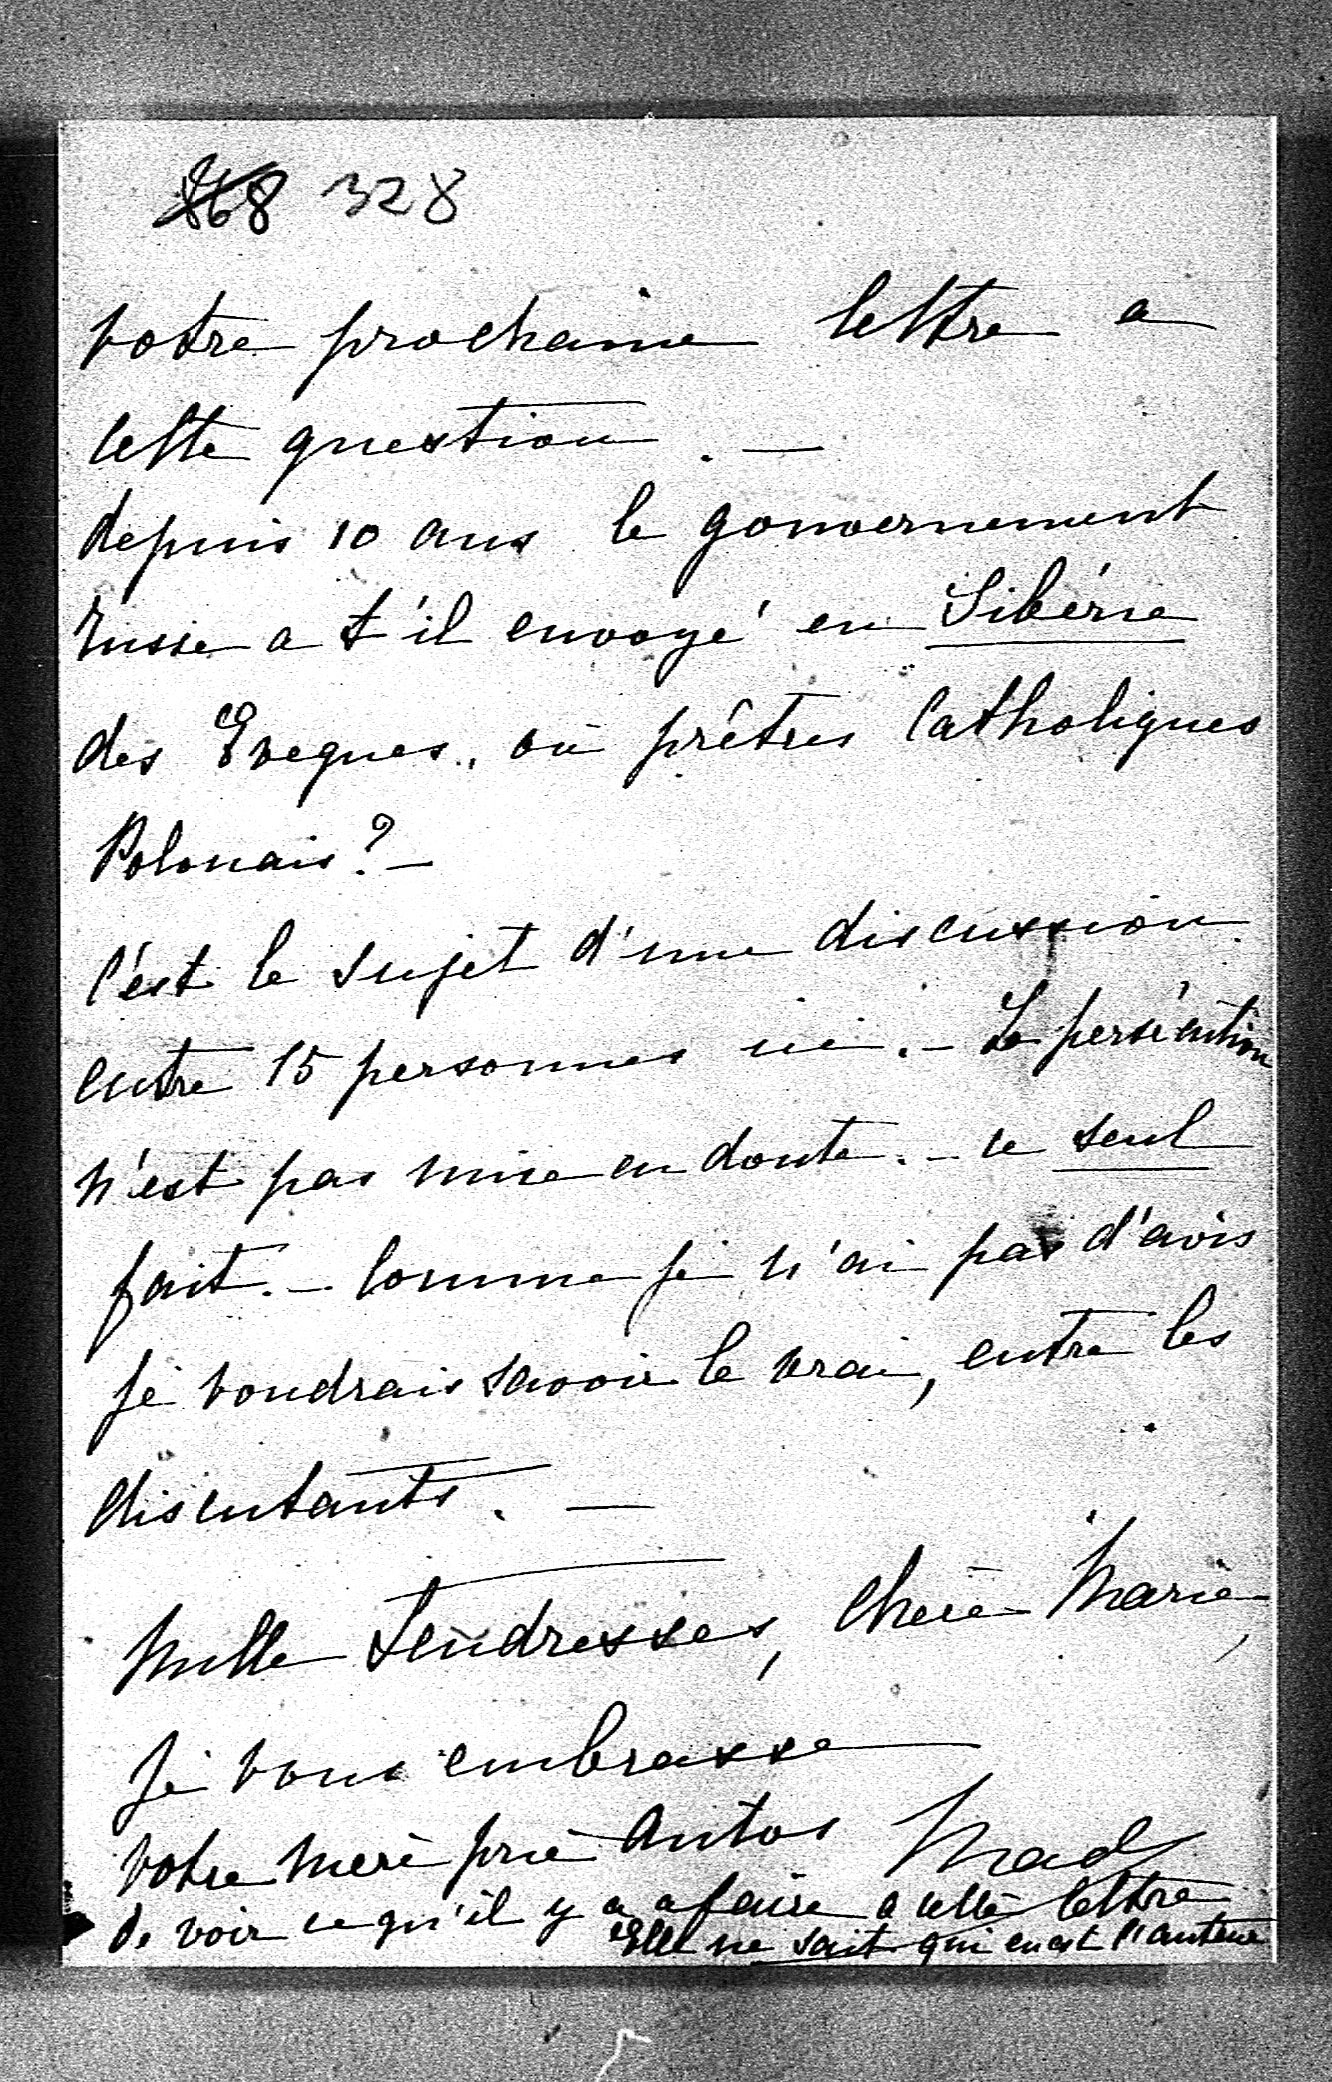 868 328
votre prochaine lettre a
cette question. —
depuis 10 ans le gouvernement
russe a t'il envoyé en Sibérie
des Eveques, ou prêtres Catholiques
Polonais? —
C'est le sujet d'une discussion
entre 15 personnes ici. — La persécution
n'est pas mise en doute. — ce seul
fait. — Comme je n'ai pas d'avis
je voudrais savoir le vrai, entre les
discutants. —
Mille tendresses, chère Marie,
Je vous embrasse
votre mere prie Antos Mad
de voir ce qu'il y a a faire a cette lettre
Elle ne sait qui en est l'auteur